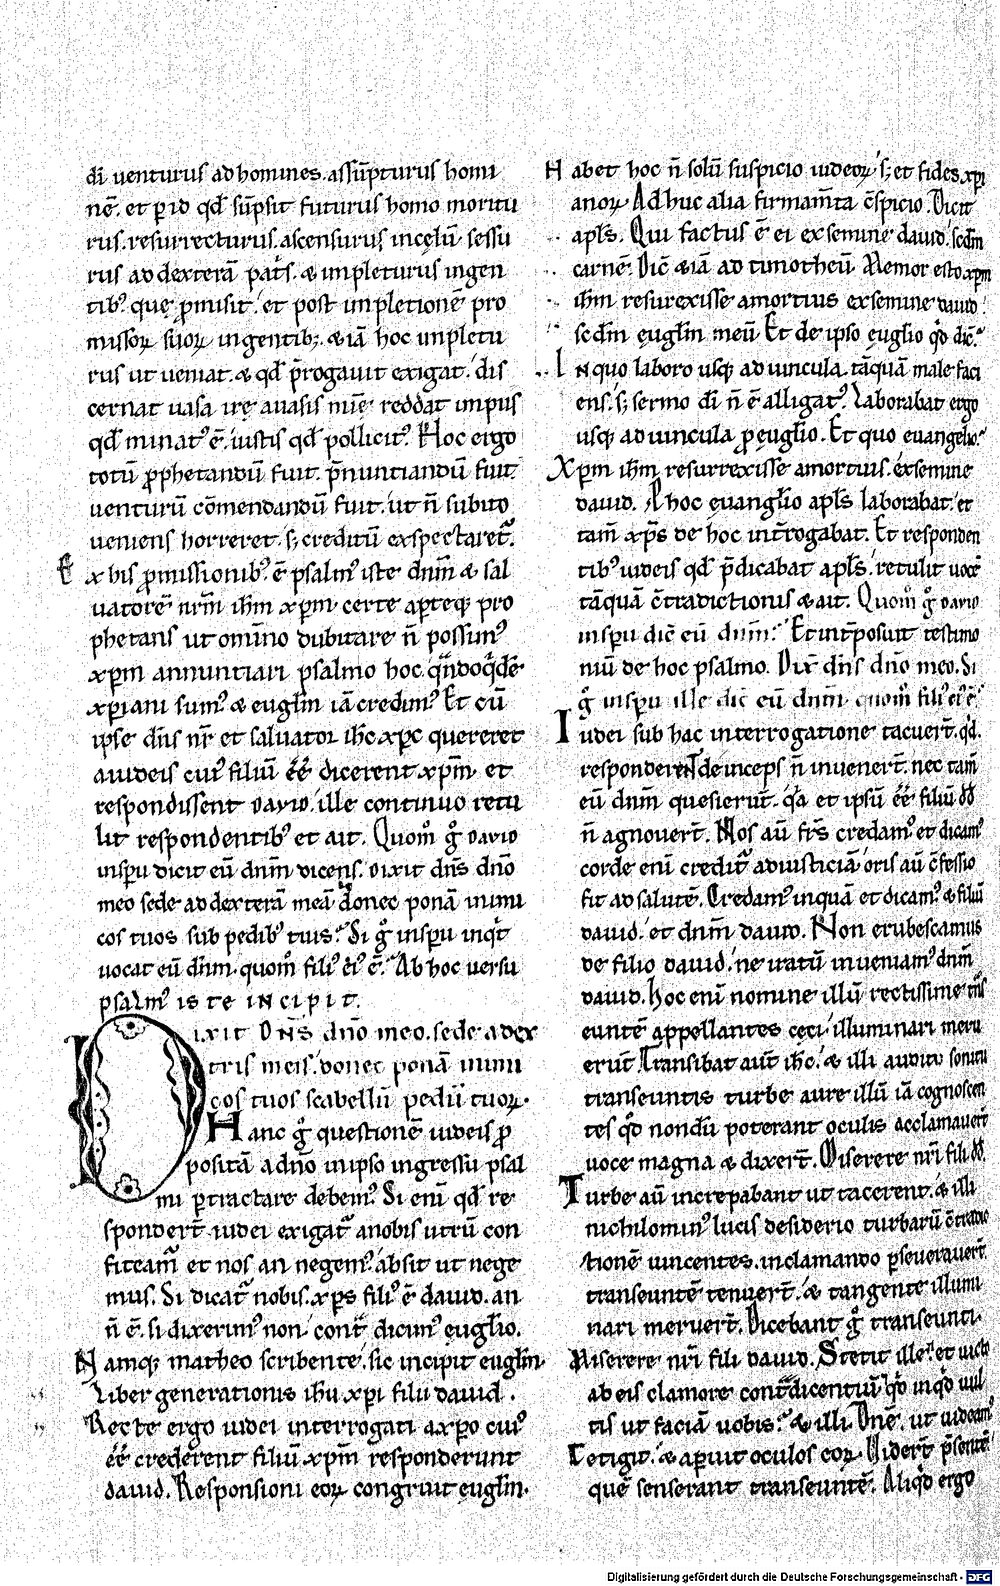 di uenturus ad homines. assūpturus homi
nē. et ꝑ id qđ sūpsit futurus homo moritu
rus. resurrecturus. ascensurus in cęlū. sessu
rus ad dexterā patꝛ̄s. & impleturus in gen
tibꝰ quę ꝓmisit. et post inpletionē pro
missoꝝ suoꝝ in gentibꝫ. & iā hoc impletu
rus ut ueniat. & qđ p̄rogauit exigat. dis
cernat uasa irę a uasis mīę. reddat impiis
qđ minatꝰ ē. iustis qđ pollicitꝰ. Hoc ergo
totū ꝓphetandū fuit. p̄nuntiandū fuit.
uenturū cōmendandū fuit. ut n̄ subito
ueniens horreret. sꝫ creditū exspectaret᷑.
Ex his ꝓmissionibꝰ ē psalmꝰ iste dn̄m & sal
uatorē nr̄m ih̄m xp̄m certe aꝑteqꝫ pro
phetans ut omīno dubitare n̄ possimꝰ
xp̄m annuntiari psalmo hoc. qn̄doqđē
xp̄iani sumꝰ & eugl̄m iā credimꝰ. Et cū
ipse dn̄s nr̄ et saluator ih̄c xp̄c quereret
a iudeis cuiꝰ filiū ēē dicerent xp̄m. et
respondissent dauid. ille continuo retu
lit respondentibꝰ et ait. Quom̄ g̊ dauid
in sp̄u dicit eū dn̄m dicens. dixit dn̄s dn̄o
meo sede ad dexterā meā donec ponā inimi
cos tuos sub pedibꝰ tuis. Si g̊ in sp̄u inq̇t
uocat eū dn̄m. quom̄ filiꝰ eiꝰ ē. Ab hoc uersu
psalmꝰ iste incipit.
Dixit Dn̄s dn̄o meo. sede a dex
tris meis. donec ponā inimi
cos tuos scabellū pedū tuoꝝ.
Hanc g̊ questionē iudeis ꝓ
positā a dn̄o in ipso ingressu psal
mi ꝑtractare debemꝰ. Si enī qđ re
sponder̄t iudei exigat᷑ a nobis utrū con
fiteam᷑ et nos an negemꝰ. absit ut nege
mus. Si dicat᷑ nobis. xp̄s filiꝰ ē dauid. an
n̄ ē. si dixerimꝰ non. cont̄ dicimꝰ euglio.
Namqꝫ matheo scribente. sic incipit eugl̄m.
Liber generationis ih̄u xp̄i filii dauid.
Recte ergo iudei interrogati a xp̄o cuiꝰ
ēē crederent filiū xp̄m responderunt
dauid. Responsioni eoꝝ congruit eugl̄m.
Habet hoc n̄ solū suspicio iudeoꝝ. sꝫ et fides xp̄i
anoꝝ. Adhuc alia firmam̄ta c̄spicio. Dicit
apl̄s. Qui factus ē ei ex semine dauid. sc̄dm
carnē. Dic̄ & iā ad timotheū. Memor esto xp̄m
ih̄m resurexisse a mortuis ex semine dauid.
sc̄dm eugl̄m meū. Et de ipso euglio q̊d dic̄.
In quo laboro usqꝫ ad uincula. tāquā male faci
ens. sꝫ sermo di n̄ ē alligatꝰ. Laborabat ergo
usqꝫ ad uincula ꝓ euglio. Et quo euangelio.
Xp̄m ih̄m resurrexisse a mortuis. ex semine
dauid. P hoc euanglio apl̄s laborabat. et
tam̄ xp̄s de hoc int̄rogabat. Et responden
tibꝰ iudeis qđ p̄dicabat apl̄s. retulit uocē
tāquā c̄tradictionis & ait. Quom̄ g̊ dauid
in sp̄u dic̄ eū dn̄m. Et int̄posuit testimo
niū de hoc psalmo. Dix̄ dn̄s dn̄o meo. Si
g̊ in sp̄u ille dic̄ eū dn̄m quom̄ filiꝰ eiꝰ ē.
Iudei sub hac interrogatione tacuer̄t. qđ
responderent deinceps n̄ inuener̄t. nec tam̄
eū dn̄m quesierūt. q̇a et ipsū ēē filiū dđ
n̄ agnouer̄t. Nos aū fr̄s credamꝰ et dicamꝰ
corde enī credit᷑ ad iusticiā. oris aū c̄fessio
fit ad salutē. Credamꝰ inquā et dicamꝰ & filiū
dauid. et dn̄m dauid. Non erubescamus
de filio dauid. ne iratū inueniamꝰ dn̄m
dauid. Hoc enī nomine illū rectissime trās
euntē appellantes cęci. illuminari meru
erūt. Transibat aut̄ ih̄c. & illi audito sonitu
transeuntis turbe aure illū iā cognoscen
tes q̊d nondū poterant oculis. acclamauer̄t
uoce magna & dixer̄t. Miserere nr̄i fili dđ.
Turbe aū increpabant ut tacerent. & illi
nichilominꝰ lucis desiderio turbarū c̄tradic
tionē uincentes. inclamando ꝑseuerauer̄t.
transeuntē tenuer̄t. & tangente illumi
nari meruer̄t. Dicebant g̊ transeunti.
Miserere nr̄i fili dauid. Stetit ille. et uicto
ab eis clamore contradicentiū q̊d inq̇d uul
tis ut faciā uobis. & illi. Dn̄e. ut uideamꝰ.
Tetigit. & aꝑuit oculos eoꝝ. Uider̄t p̄sentē.
quē senserant transeuntē. Aliq̊d ergo
Digitalisierung gefördert durch die Deutsche Forschungsgemeinschaft - DFG